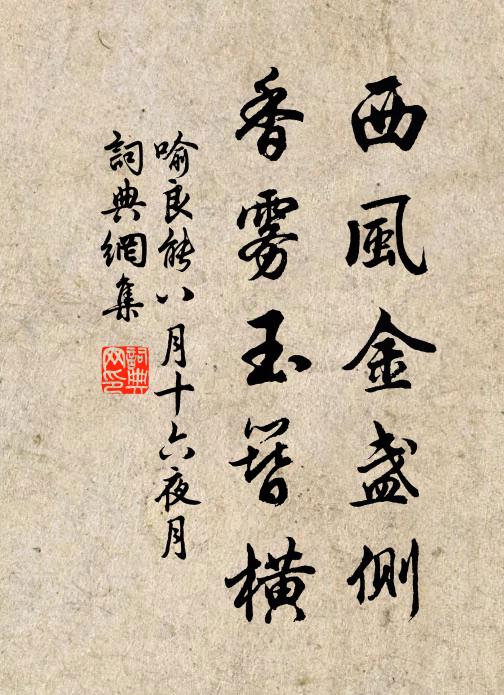 西風金盞側
香霧玉簪橫
喻良能八月十六夜月
詞典網集
詞典
网印